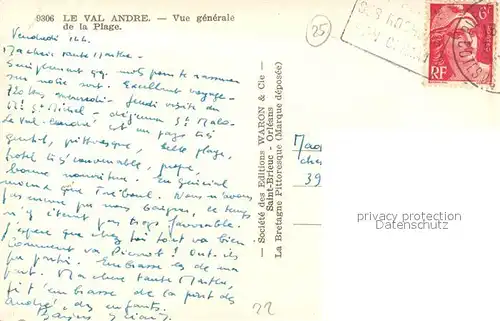 9306 LE VAL ANDRE. — Vue générale
de la Plage.
Vendredi
Ma chère tante Marthe
Simplement qq. mots pour te rassurer
sur notre sort. Excellent voyage
720 kms mercredi - Jeudi visite du
Mt St Michel - déjeuner St Malo
Le Val-André est un pays très
gentil, pittoresque, belle plage,
hotel très convenable, propre,
bonne nourriture. En général
moins que Tréboul. Nous n'avons
pas encore pu nous baigner, le temps
n'y étant pas trop favorable.
J'espère que chez toi tout va bien
Comment va Pierrot? Ont-ils
pu partir. Embrasse les de ma
part. Ma chère tante Marthe,
je t'embrasse de la part des
André, des enfants.
Baisers
— Société des Editions WARON & Cie —
Saint-Brieuc - Orléans
La Bretagne Pittoresque (Marque déposée)
25
6F
RF
39
22
privacy protection
Datenschutz